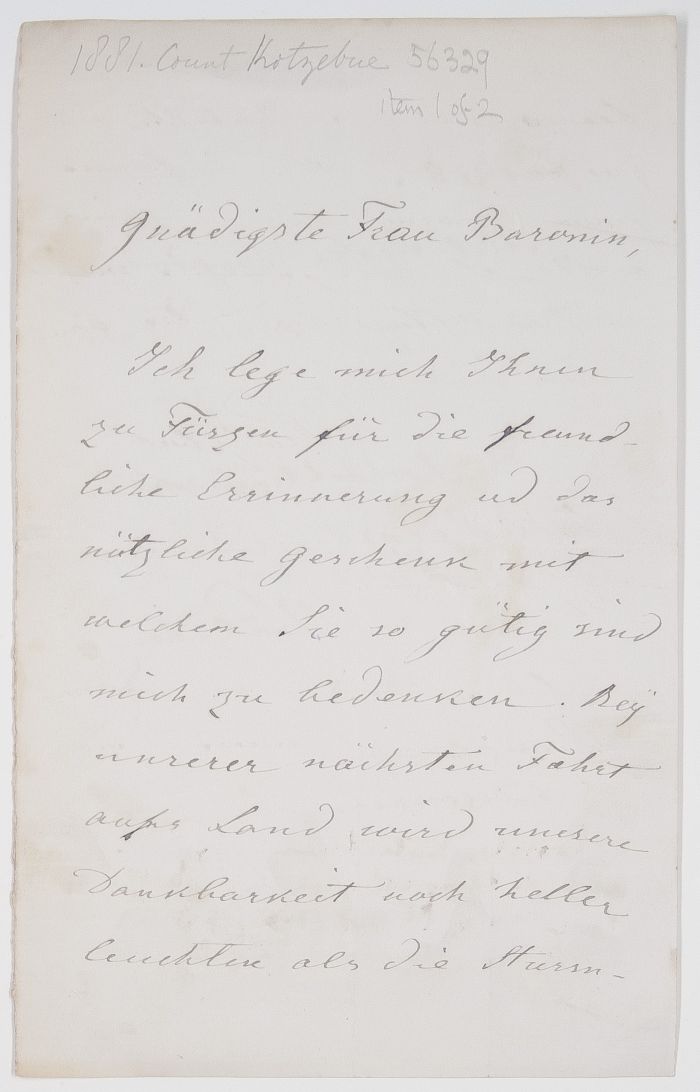 1881. Count Kotzebue 56329
item 1 of 2
Gnädigste Frau Baronin,
Ich lege mich Ihnen
zu Füszen für die freund-
liche Errinnerung ud das
nützliche Geschenk mit
welchem Sie so gütig sind
mich zu bedenken. Beÿ
unserer nächsten Fahrt
aufs Land wird unsere
Dankbarkeit noch heller
leuchten als die Sturm-